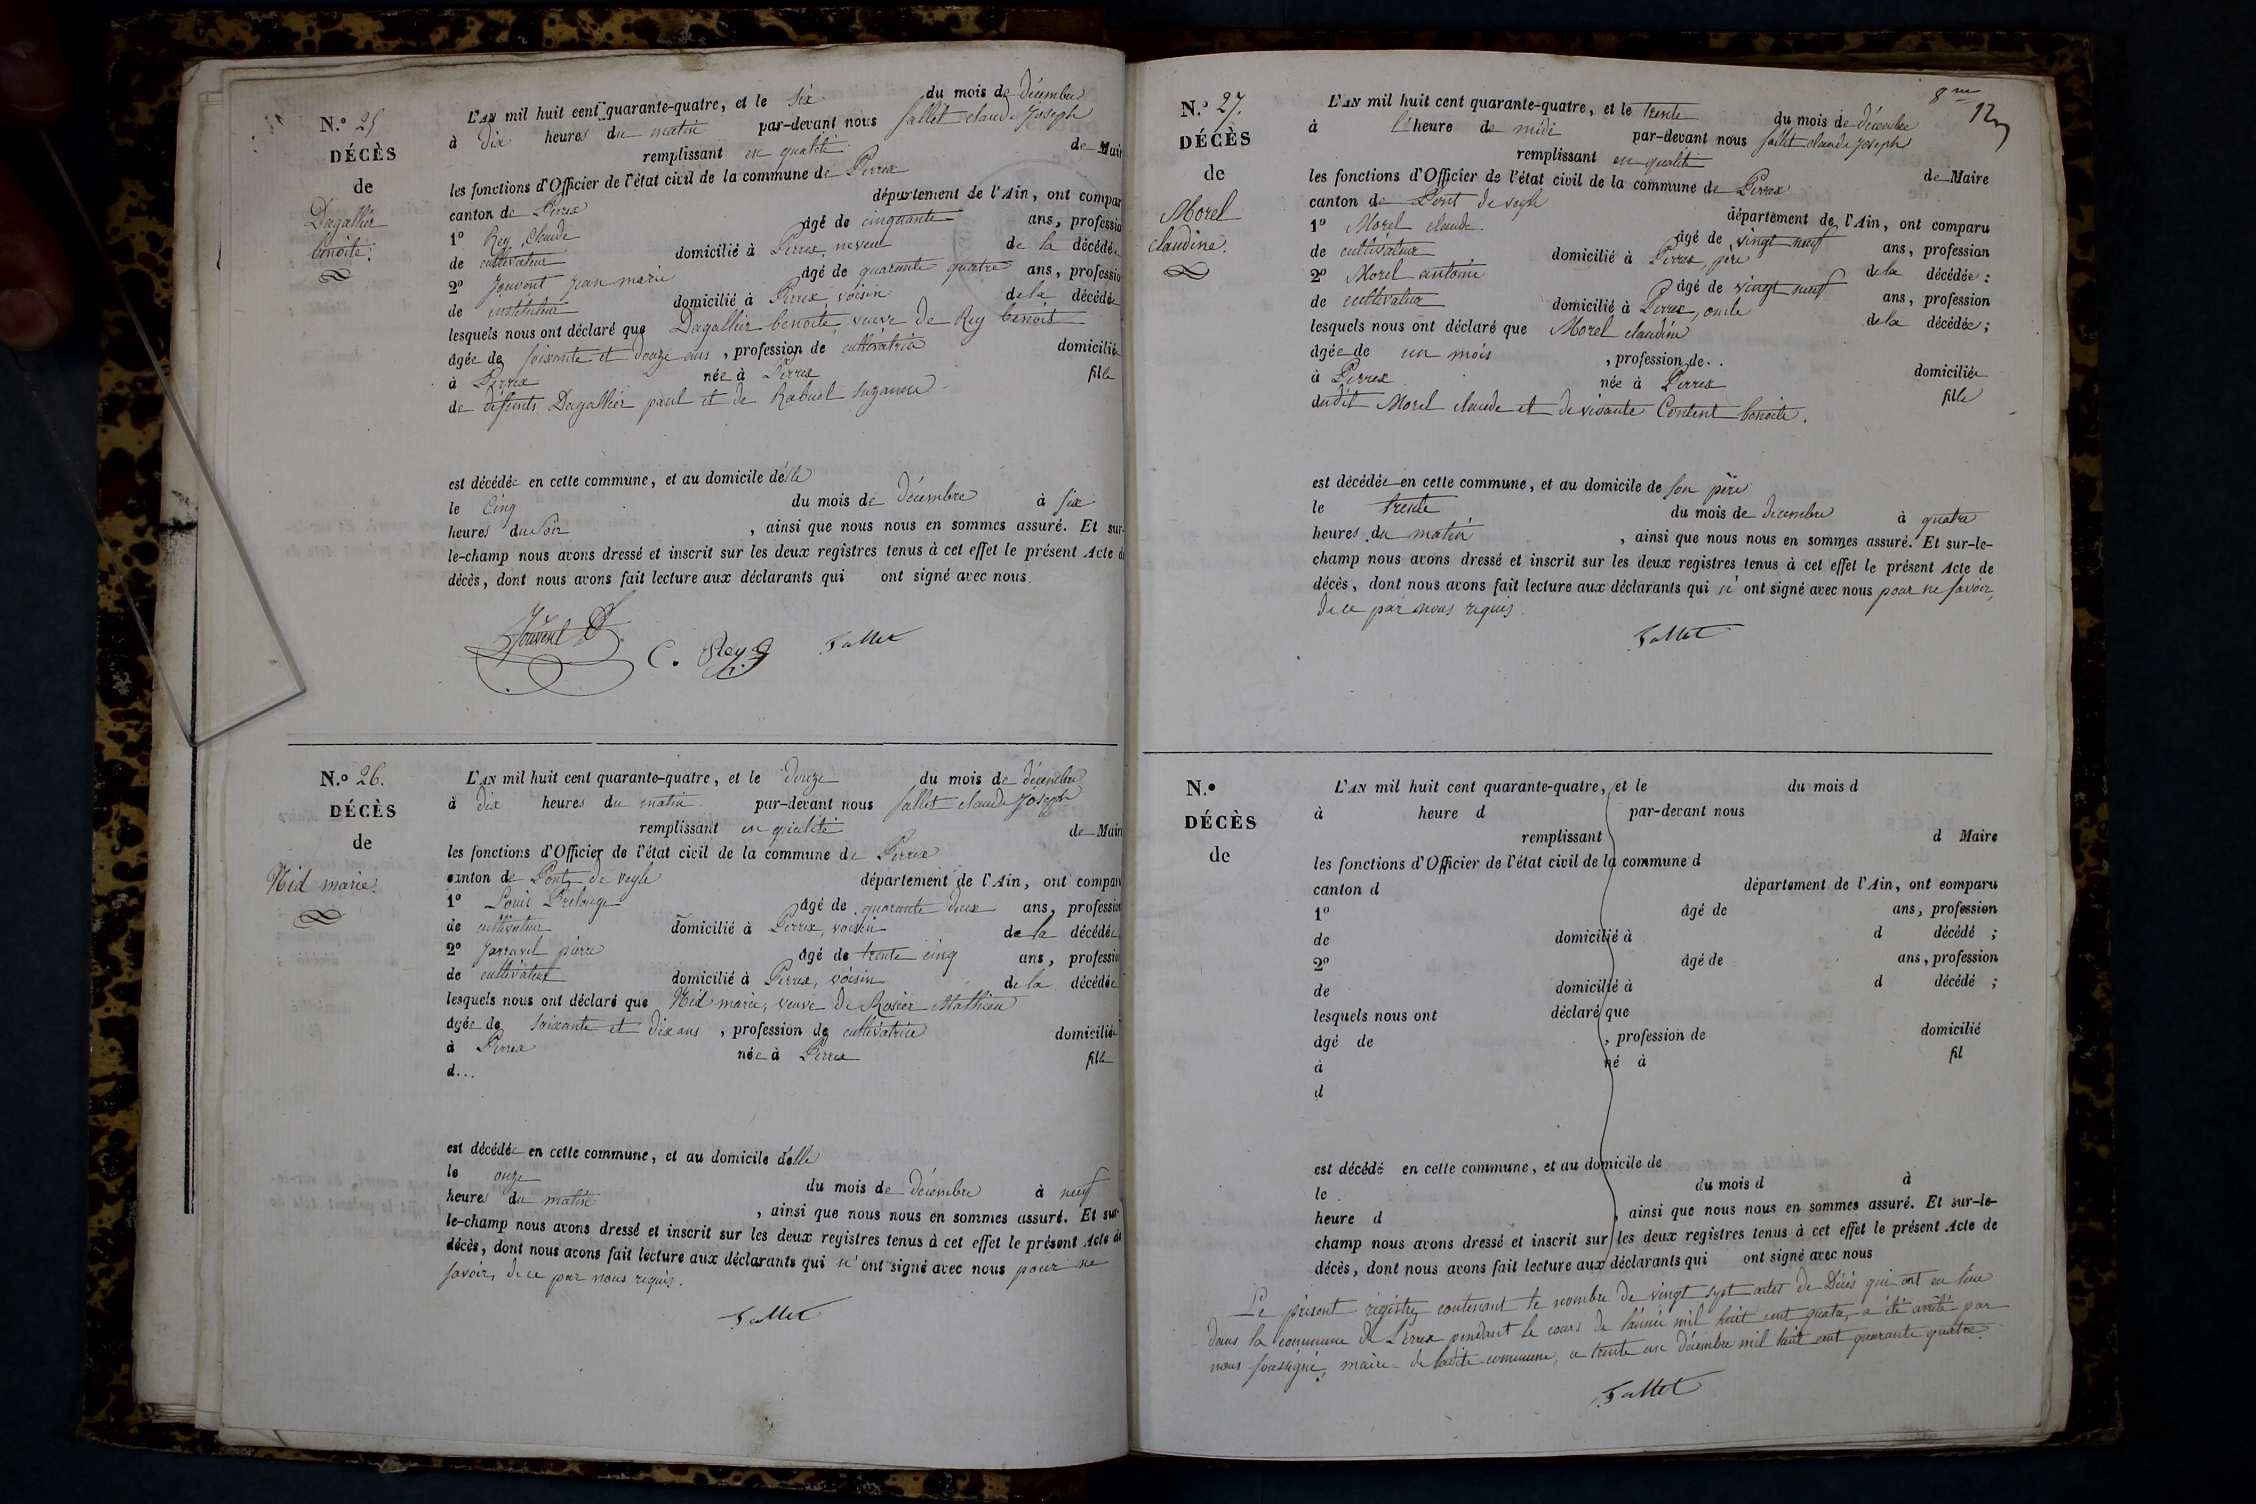 N.º 25
DÉCÈS
de
Dagallier
benoite.
L'AN mil huit cent quarante-quatre, et le six du mois de décembre
à dix heures du matin par-devant nous fallet claude Joseph
remplissant en qualité de Mair
les fonctions d'Officier de l'état civil de la commune de Perrex
canton de Perrex département de l'Ain, ont compar
1º Rey Claude âgé de cinquante ans, professio
de cultivateur domicilié à Perrex, neveu de la décédée
2º Jouvent jean marie âgé de quarante quatre ans, professio
de instituteur domicilié à Perrex, voisin de la décédée
lesquels nous ont déclaré que Dagallier benoite, veuve de Rey benoit
âgée de soixante et douze ans, profession de cultivatrice domiciliée
à Perrex née à Perrex fille
de défunts Dagallier paul et de Rabuel suzanne
est décédée en cette commune, et au domicile d'elle
le Cinq du mois de décembre à six
heures du soir, ainsi que nous nous en sommes assuré. Et sur-
le-champ nous avons dressé et inscrit sur les deux registres tenus à cet effet le présent Acte d
décès, dont nous avons fait lecture aux déclarants qui ont signé avec nous.
Jouvent C. Rey fallet
N.º 26.
DÉCÈS
de
Nid marie.
L'AN mil huit cent quarante-quatre, et le douze du mois de décembre
à dix heures du matin par-devant nous fallet claude Joseph
remplissant en qualité de Mair
les fonctions d'Officier de l'état civil de la commune de Perrex
canton de Pont de veyle département de l'Ain, ont compar
1º Louis Prelonge âgé de quarante deux ans, profession
de cultivateur domicilié à Perrex, voisin de la décédée
2º Jarravel pierre âgé de trente cinq ans, professio
de cultivateur domicilié à Perrex, voisin de la décédée
lesquels nous ont déclaré que Nid marie, veuve de Rosier Mathieu
âgée de soixante et dix ans, profession de cultivatrice domiciliée
à Perrex née à Perrex fille
d...
est décédée en cette commune, et au domicile d'elle
le onze du mois de décembre à neuf
heures du matin, ainsi que nous nous en sommes assuré. Et sur-
le-champ nous avons dressé et inscrit sur les deux registres tenus à cet effet le présent Acte de
décès, dont nous avons fait lecture aux déclarants qui n'ont signé avec nous pour ne
savoir, de ce par nous requis.
fallet
8me
12
N.º 27.
DÉCÈS
de
Morel
claudine.
L'AN mil huit cent quarante-quatre, et le trente du mois de décembre
à l'heure de midi par-devant nous fallet claude Joseph
remplissant en qualité de Maire
les fonctions d'Officier de l'état civil de la commune de Perrex
canton de Pont de veyle département de l'Ain, ont comparu
1º Morel claude âgé de vingt neuf ans, profession
de cultivateur domicilié à Perrex, père de la décédée ;
2º Morel antoine âgé de vingt neuf ans, profession
de cultivateur domicilié à Perrex, oncle de la décédée ;
lesquels nous ont déclaré que Morel claudine
âgée de un mois, profession de. . domiciliée
à Perrex née à Perrex fille
dudit Morel claude et de vivante Content benoite.
est décédée en cette commune, et au domicile de son père
le trente du mois de décembre à quatre
heures du matin, ainsi que nous nous en sommes assuré. Et sur-le-
champ nous avons dressé et inscrit sur les deux registres tenus à cet effet le présent Acte de
décès, dont nous avons fait lecture aux déclarants qui n'ont signé avec nous pour ne savoir,
de ce par nous requis.
fallet
N.º
DÉCÈS
de
L'AN mil huit cent quarante-quatre, et le du mois d
à heure d par-devant nous
remplissant d Maire
les fonctions d'Officier de l'état civil de la commune d
canton d département de l'Ain, ont comparu
1º âgé de ans, profession
de domicilié à d décédé ;
2º âgé de ans, profession
de domicilié à d décédé ;
lesquels nous ont déclaré que
âgé de , profession de domicilié
à né à fil
d
est décédé en cette commune, et au domicile de
le du mois d à
heure d , ainsi que nous nous en sommes assuré. Et sur-le-
champ nous avons dressé et inscrit sur les deux registres tenus à cet effet le présent Acte de
décès, dont nous avons fait lecture aux déclarants qui ont signé avec nous
Le présent registre, contenant le nombre de vingt sept actes de Décès qui ont eu lieu
dans la commune de Perrex pendant le cours de l'année mil huit cent quatre, a été arrêté par
nous soussigné, maire de ladite commune, ce trente un décembre mil huit cent quarante quatre.
fallet